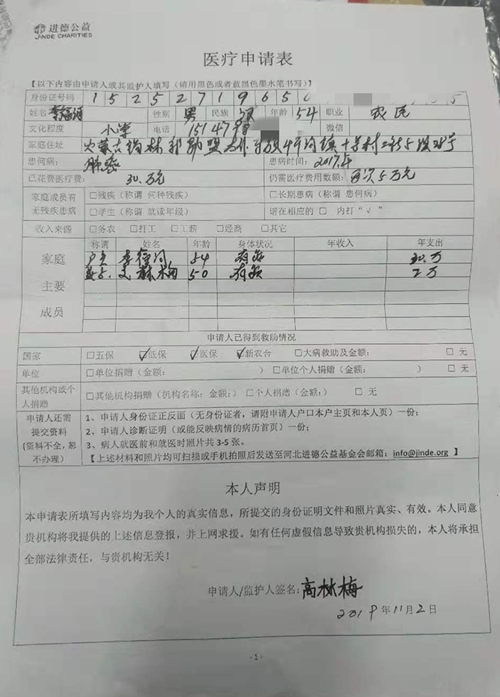 进德公益
JINDE CHARITIES
医疗申请表
【以下内容由申请人或其监护人填写（请用黑色或者蓝黑色墨水笔书写）】
身份证号码 1 5 2 5 2 7 1 9 6 5 0
姓名 性别 男 民族 汉 年龄 54 职业 农民
文化程度 小学 15147 微信
家庭住址
患何病: 肺癌 患病时间: 2017年
已花费医疗费: 30万元 仍需医疗费用数额: 5万元
家庭成员有无残疾患病 □残疾（称谓 何种残疾） □长期患病（称谓 患何病）
□学生（称谓 就读年级） 请在相应的 □ 内打“√”
收入来源 □务农 □打工 □工薪 □经商 □其它
家庭主要成员 称谓 姓名 年龄 身体状况 年收入 年支出
户主 54 30万
妻子 50 2万
申请人已得到救助情况
国家 □五保 ☑低保 ☑医保 ☑新农合 □大病救助及金额: □无
单位 □单位捐赠（金额: ） □单位个人捐赠（金额: ） □无
其他机构或个人捐赠 □其他机构捐赠（机构名称: 金额: ） □个人捐赠（金额: ） □无
申请人还需提交资料（资料不全，恕不办理）
1、申请人身份证正反面（无身份证者，请附申请人户口本户主页和本人页）一份；
2、申请人诊断证明（或能反映病情的病历首页）一份；
3、病人就医前和就医时照片共 3-5 张。
【上述材料和照片均可扫描或手机拍照后发送至河北进德公益基金会邮箱: info@jinde.org】
本人声明
本申请表所填写内容均为我个人的真实信息，所提交的身份证明文件和照片真实、有效。本人同意
贵机构将我提供的上述信息登报，并上网求援。如有任何虚假信息导致贵机构损失的，本人将承担
全部法律责任，与贵机构无关！
申请人/监护人签名: 高林梅
2019年11月2日
-1-